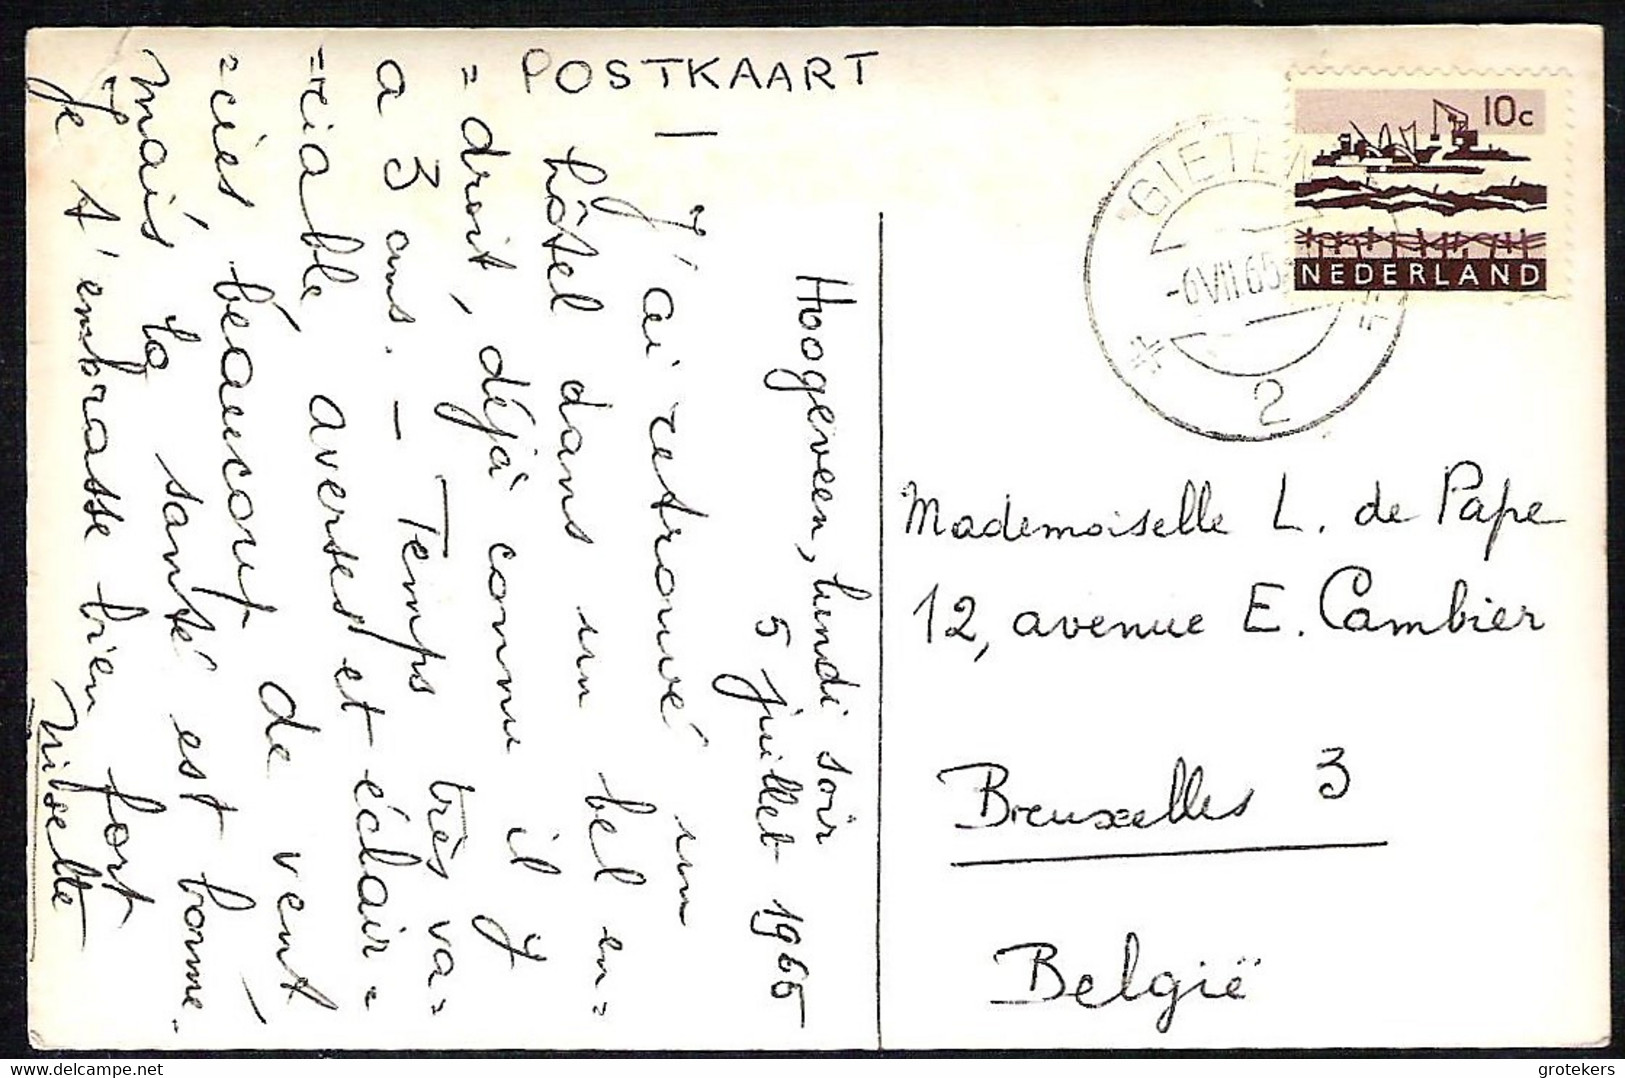 POSTKAART
Hoogeveen, lundi soir
5 juillet 1965
J'ai retrouvé un
hôtel dans un bel en=
=droit, déjà connu il y
a 3 ans. - Temps très va=
=riable, averses et éclair=
=cies, beaucoup de vent,
mais la santé est bonne.
Je t'embrasse bien fort
GIETEN
-6 VII.65
2
10c
NEDERLAND
Mademoiselle L. de Pape
12, avenue E. Cambier
Bruxelles 3
België
grotekers